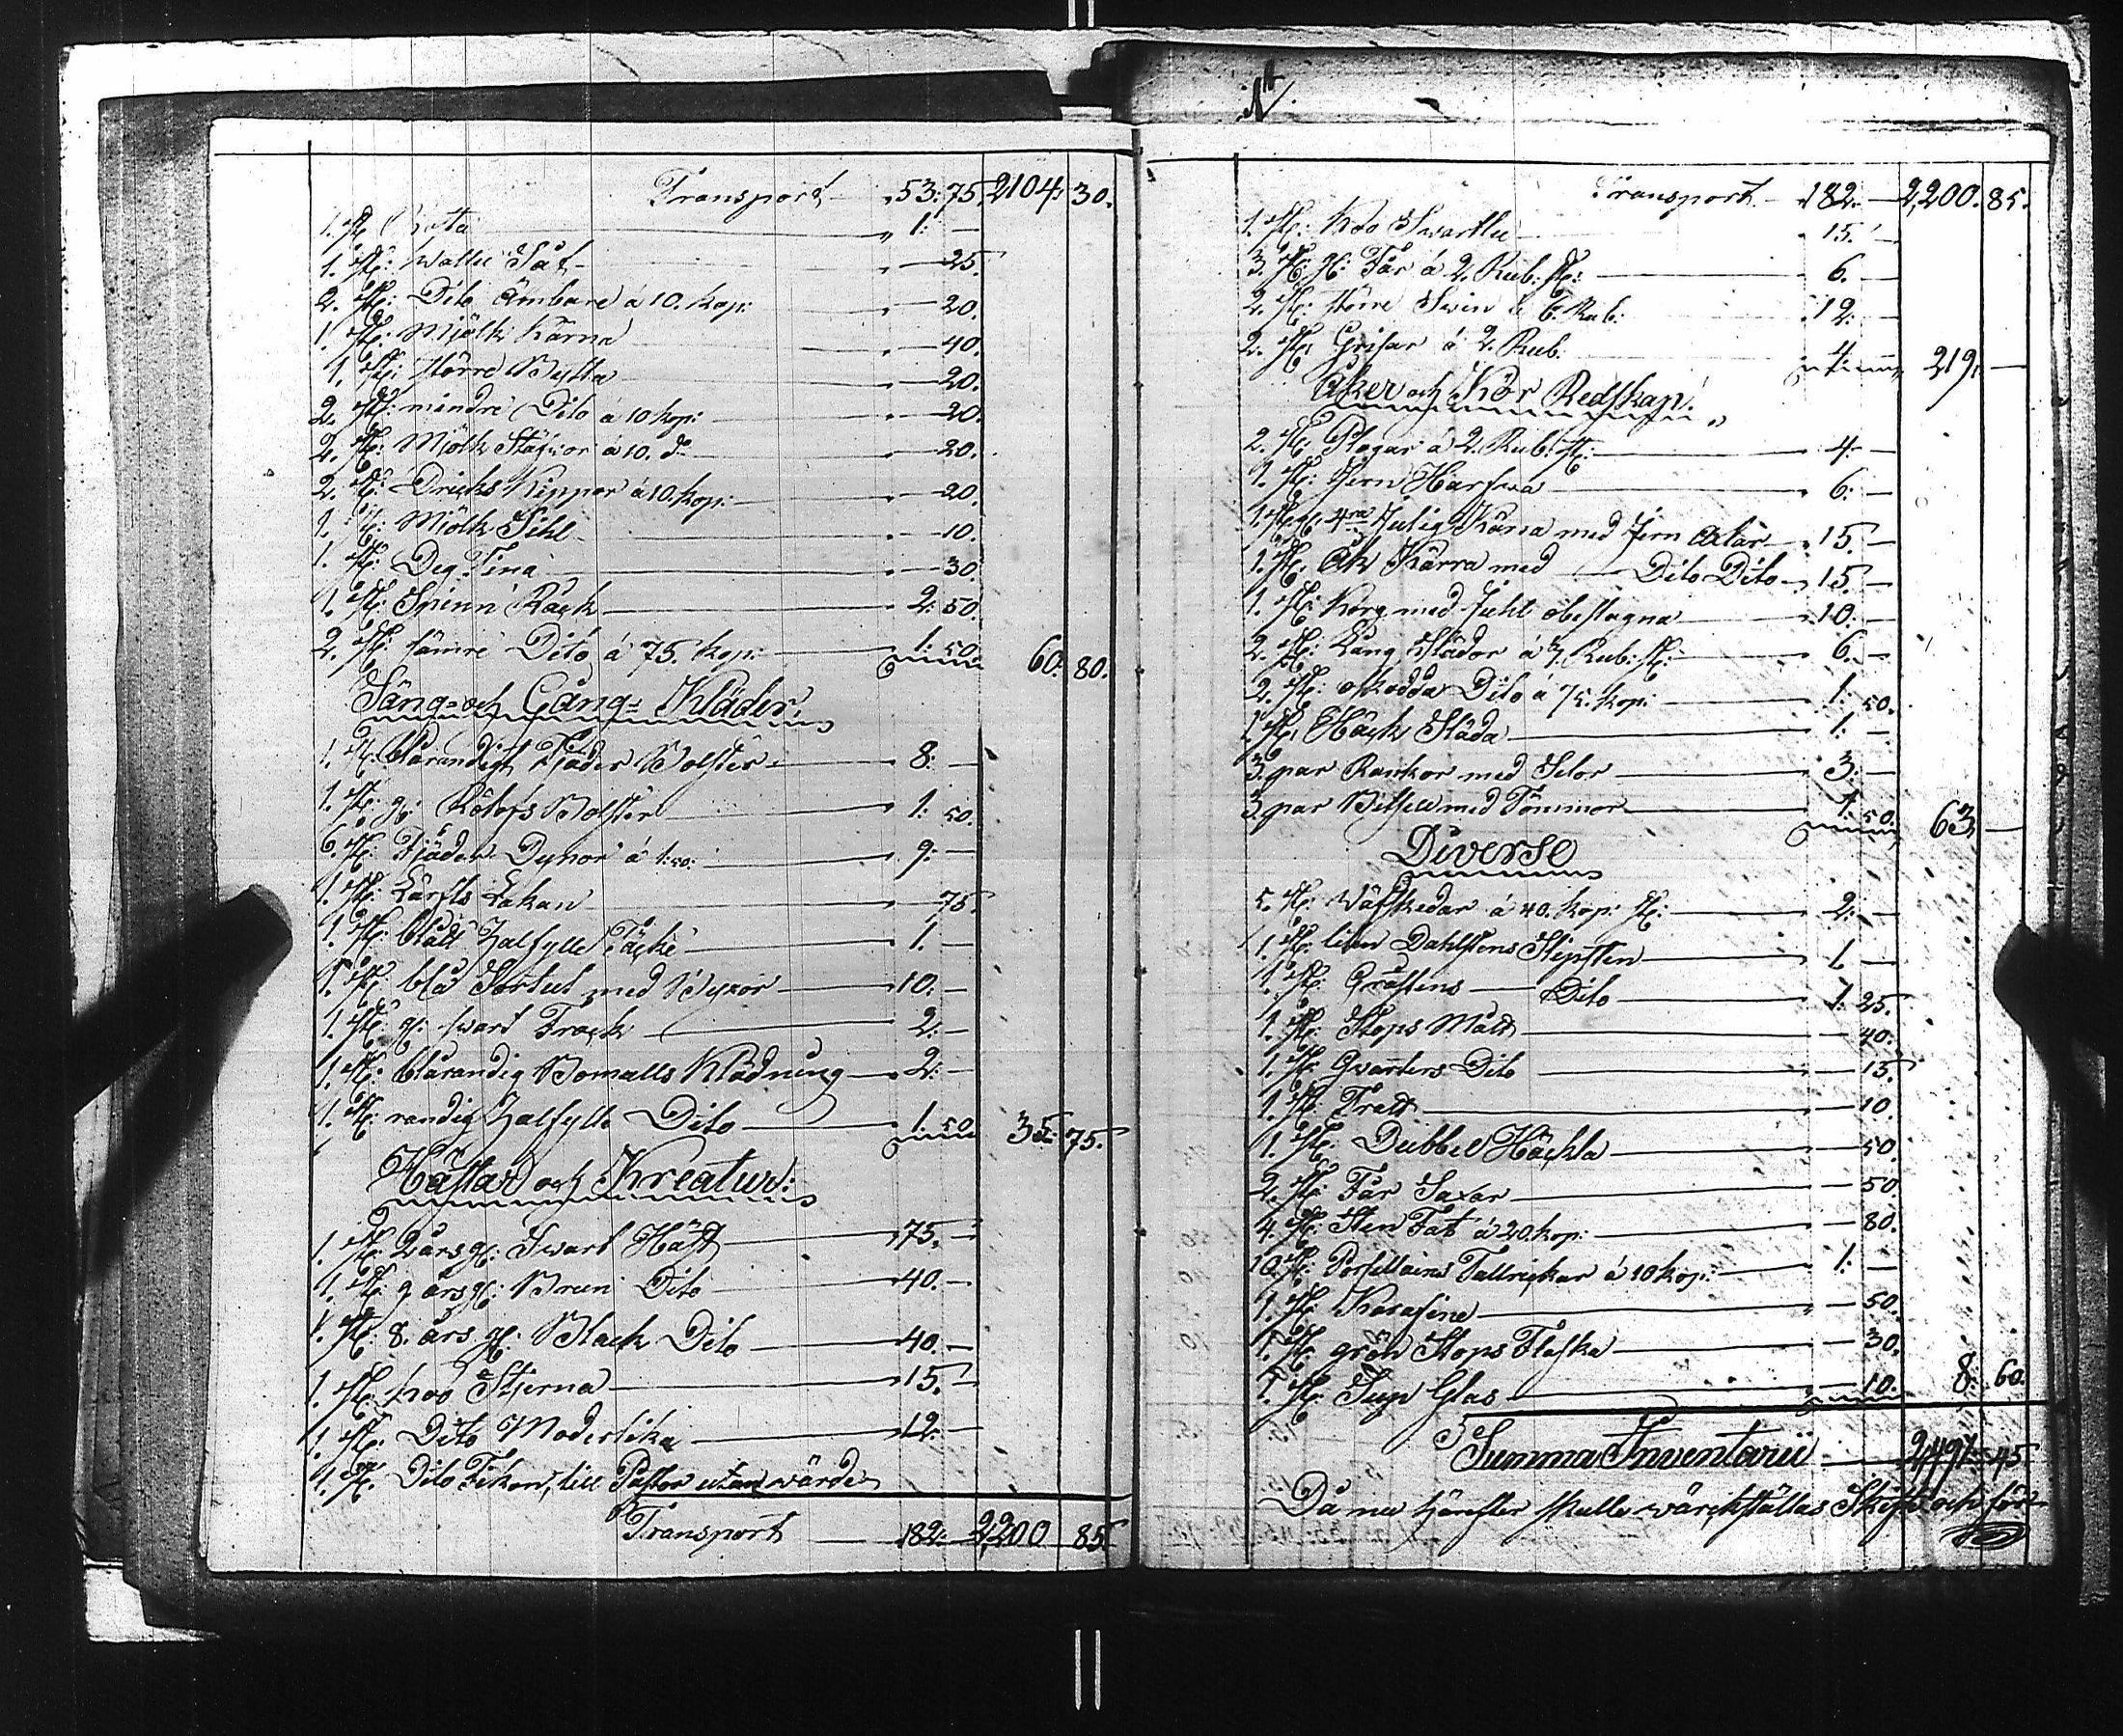 Transport 53: 75. 2104: 30.
1. st: 1: —
1. st: Watten Såt — 25
2. st: Dito Ämbare á 10. kop: — 20.
1. st: Mjölk Kärna — 40.
1. st: större Bytta — 20.
2. st: mindre Dito á 10 kop: — 20.
2. st: Mjölk Stäfvor á 10. do — 20.
2. st: Dricks Kippor á 10. kop: — 20.
1. st: Mjölk Sihl — 10.
1. st: Deg Tina — 30.
1. st: Spinn Råck 2: 50.
2. st: sämre Dito á 75. kop: 1: 50. 60: 80.
Säng- och Gång- Kläder.
1. st: blårandigt Fjäder Bolster 8: —
1. st: g: Bolster 1: 50.
6. st: Fjäder Dynor á 1:50: 9: —
1. st: Lärfts Lakan — 75.
1. st: blått Halfylle Täcke 1: —
1. st: blå Sortut med Byxor 10: —
1. st: g: swart Frack 2: —
1. st: blårandig Bomulls Klädning 2: —
1. st: randig Halfylle Dito 1: 50. 35: 75.
Hästar och Kreatur:
1. st: 2 års g: Swart Häst 75. —
1. st: 9 års g: Brun Dito 40. —
1. st: 8. års g: Black Dito 40. —
1. st: koo Stjerna 15. —
1. st: Dito Moderlika 12: —
1. st: Dito Fikon, till Pastor utan wärde
Transport 182: 2,200 85.
Transport 182: — 2,200. 85.
1. st: Koo Swartlie 15: —
3. st: g: Får á 2. Rub: st: 6. —
2. st: större Swin á 6. Rub: 12: —
2. st: Grisar á 2. Rub: 4: — 219. —
Åker och Kör Redskap.
2. st: Plogar á 2. Rub: st: 4. —
1. st: Jern Harfwa 6: —
1. st: g: 4ra Hulig Kärra med Jern axlar 15. —
1. st: Åk Kärra med Dito Dito 15. —
1. st: Korg med Juhl obeslagna 10: —
2. st: Lång Slädor á 3. Rub: st: 6. —
2. st: oskodda Dito á 75. kop: 1: 50.
1. st: Häck Släda 1: —
3. par Rankor med Selar 3: —
3. par Betsel med Tömmar 1: 50. 63. —
Diverse
5. st: Wäfskedar á 40. kop: st: 2: —
1. st: liten Dahlstens Slipsten 1. —
1. st: Gråstens Dito 1: 25.
1. st: Stops Mått — 40.
1. st: Qwarters Dito — 15.
1. st: Tratt — 10.
1. st: Dubbel Häckla — 50.
2. st: Får Saxar — 50.
4. st: Sten Fat á 20. kop: — 80.
10. st: Porsellaine Tallrickar á 10 kop: 1: —
1. st: Karafine — 50.
1. st: grön Stops Flaska — 30.
1. st: Sup Glas — 10. 8: 60.
Summa Inventarii 2,491: 45
Då nu härefter skulle wärckställas Skifte och för-